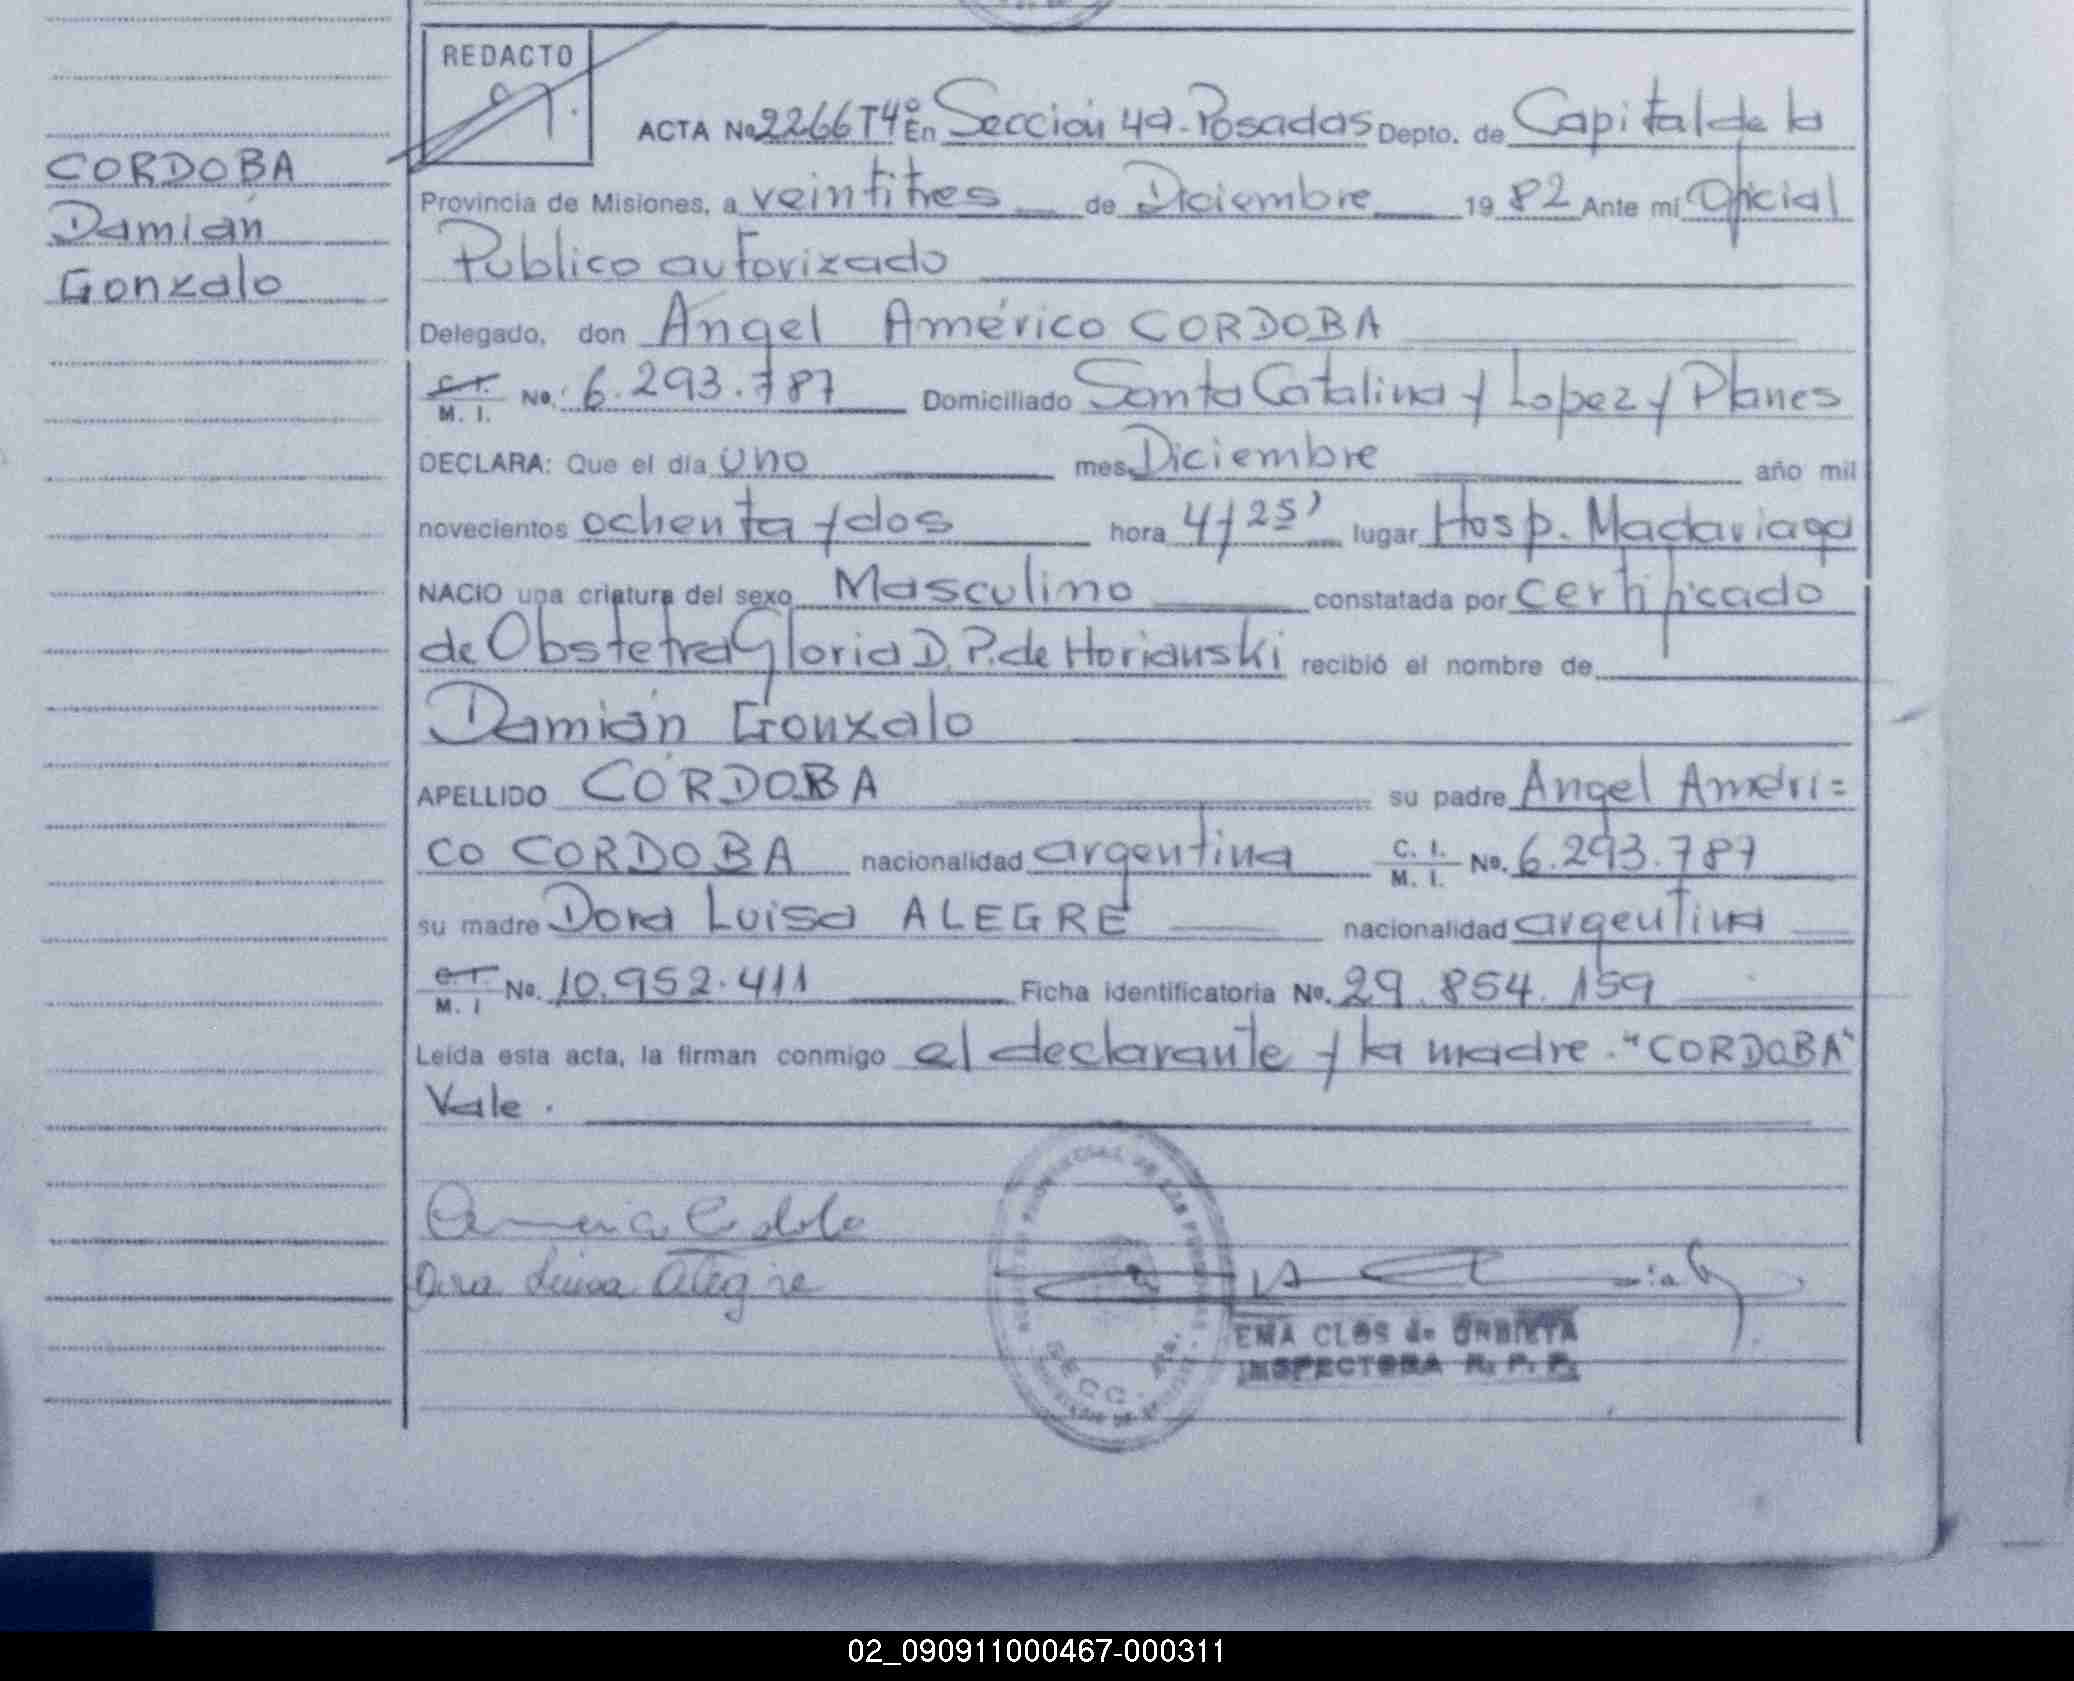 REDACTO
ACTA No 2266 T4º En Sección 4a - Posadas Depto. de Capital de la
CORDOBA
Provincia de Misiones, a veintitres de Diciembre 1982 Ante mi Oficial
Damián
Publico autorizado
Gonzalo
Delegado, don Angel Américo CORDOBA
C. I. M. I. No. 6.293.787 Domiciliado Santa Catalina y Lopez y Planes
DECLARA: Que el día uno mes Diciembre año mil
novecientos ochenta y dos hora 4 y 25' lugar Hosp. Madariaga
NACIO una criatura del sexo Masculino constatada por certificado
de Obstetra Gloria D. P. de Horianski recibió el nombre de
Damián Gonzalo
APELLIDO CORDOBA su padre Angel Améri=
co CORDOBA nacionalidad argentina C. I. M. I. No. 6.293.787
su madre Dora Luisa ALEGRE nacionalidad argentina
C. I. M. I No. 10.952.411 Ficha identificatoria No. 29.854.159
Leída esta acta, la firman conmigo el declarante y la madre. "CORDOBA"
Vale.
Dora Luisa Alegre
SECC. 4ta.
EMA CLOS de URBIETA
INSPECTORA R. P. P.
02_090911000467-000311